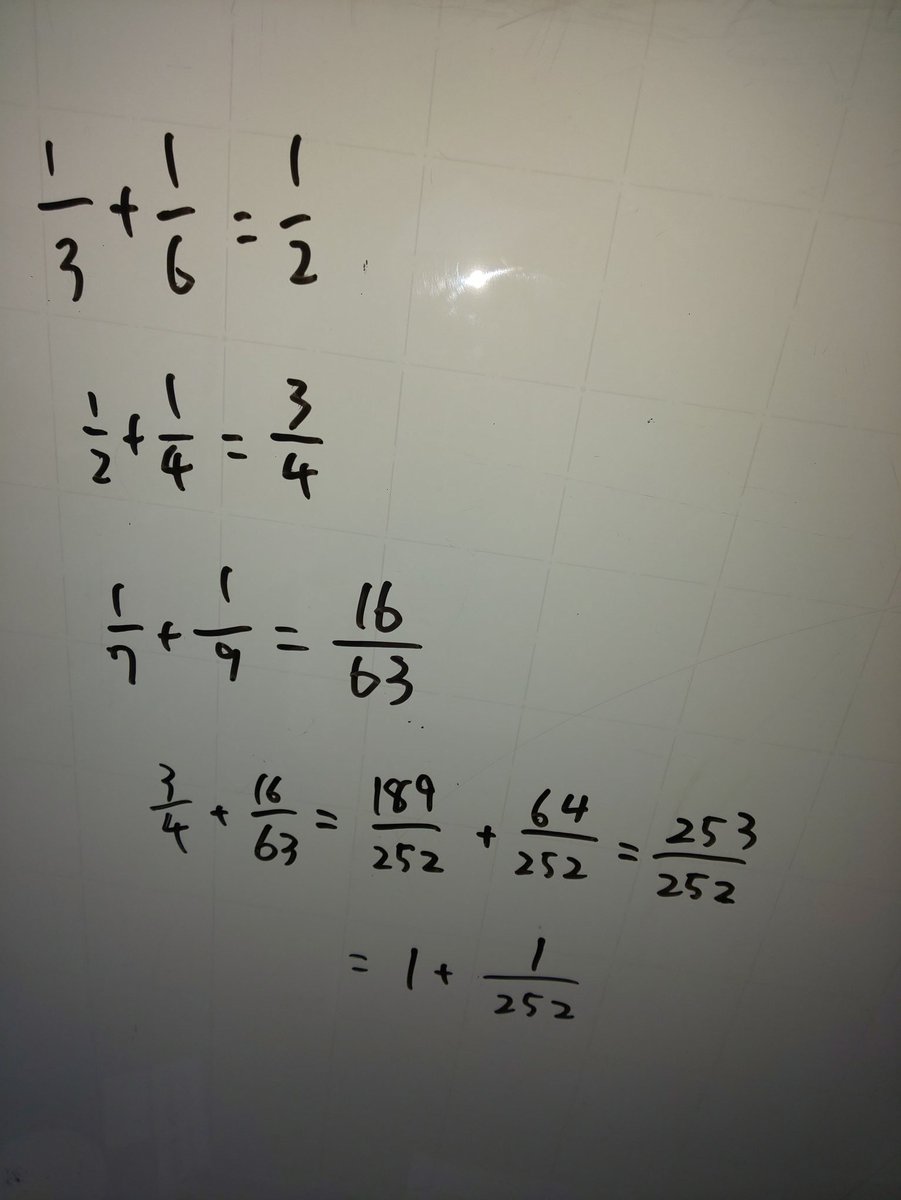 1/3 + 1/6 = 1/2
1/2 + 1/4 = 3/4
1/7 + 1/9 = 16/63
3/4 + 16/63 = 189/252 + 64/252 = 253/252
= 1 + 1/252